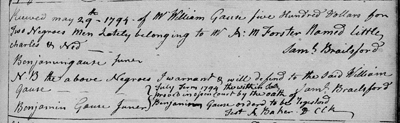 Received may 29th 1794 of Wm William Gause five Hundred Dollars for
Two Negroes Men Lately belonging to Mr Forster Named Little
charles & Ned
Saml Brailsford
Benjamin gause Juner
N B the above Negroes I warrant & will defend to the Said William
Gause
Saml Brailsford
July Term 1794 the within
proved in open court by the oath
Benjamin Gause ordered to be Registerd
Benjamin Gause Juner
Test Baker Clk